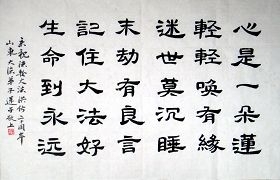 心是一朵蓮
輕輕喚有緣
迷世莫沉睡
末劫有良言
記住大法好
生命到永远
祝法輪大法洪传二十周年
山東大法弟子蓮敬上